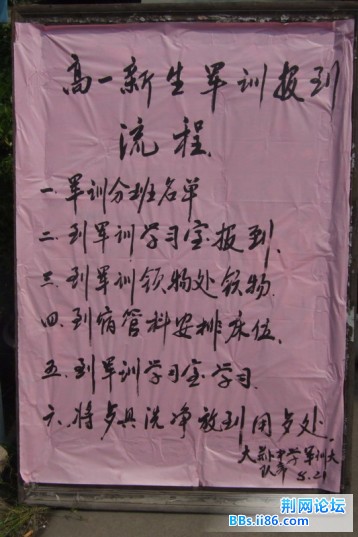 高一新生军训报到
流程.
一.军训分班名单
二.到军训学习室报到.
三.到军训领物处领物.
四.到宿管科安排床位.
五.到军训学习室学习.
六.将 具洗净放到用 处.
中学军训大
8.21
荆网论坛
BBs.ii86.com